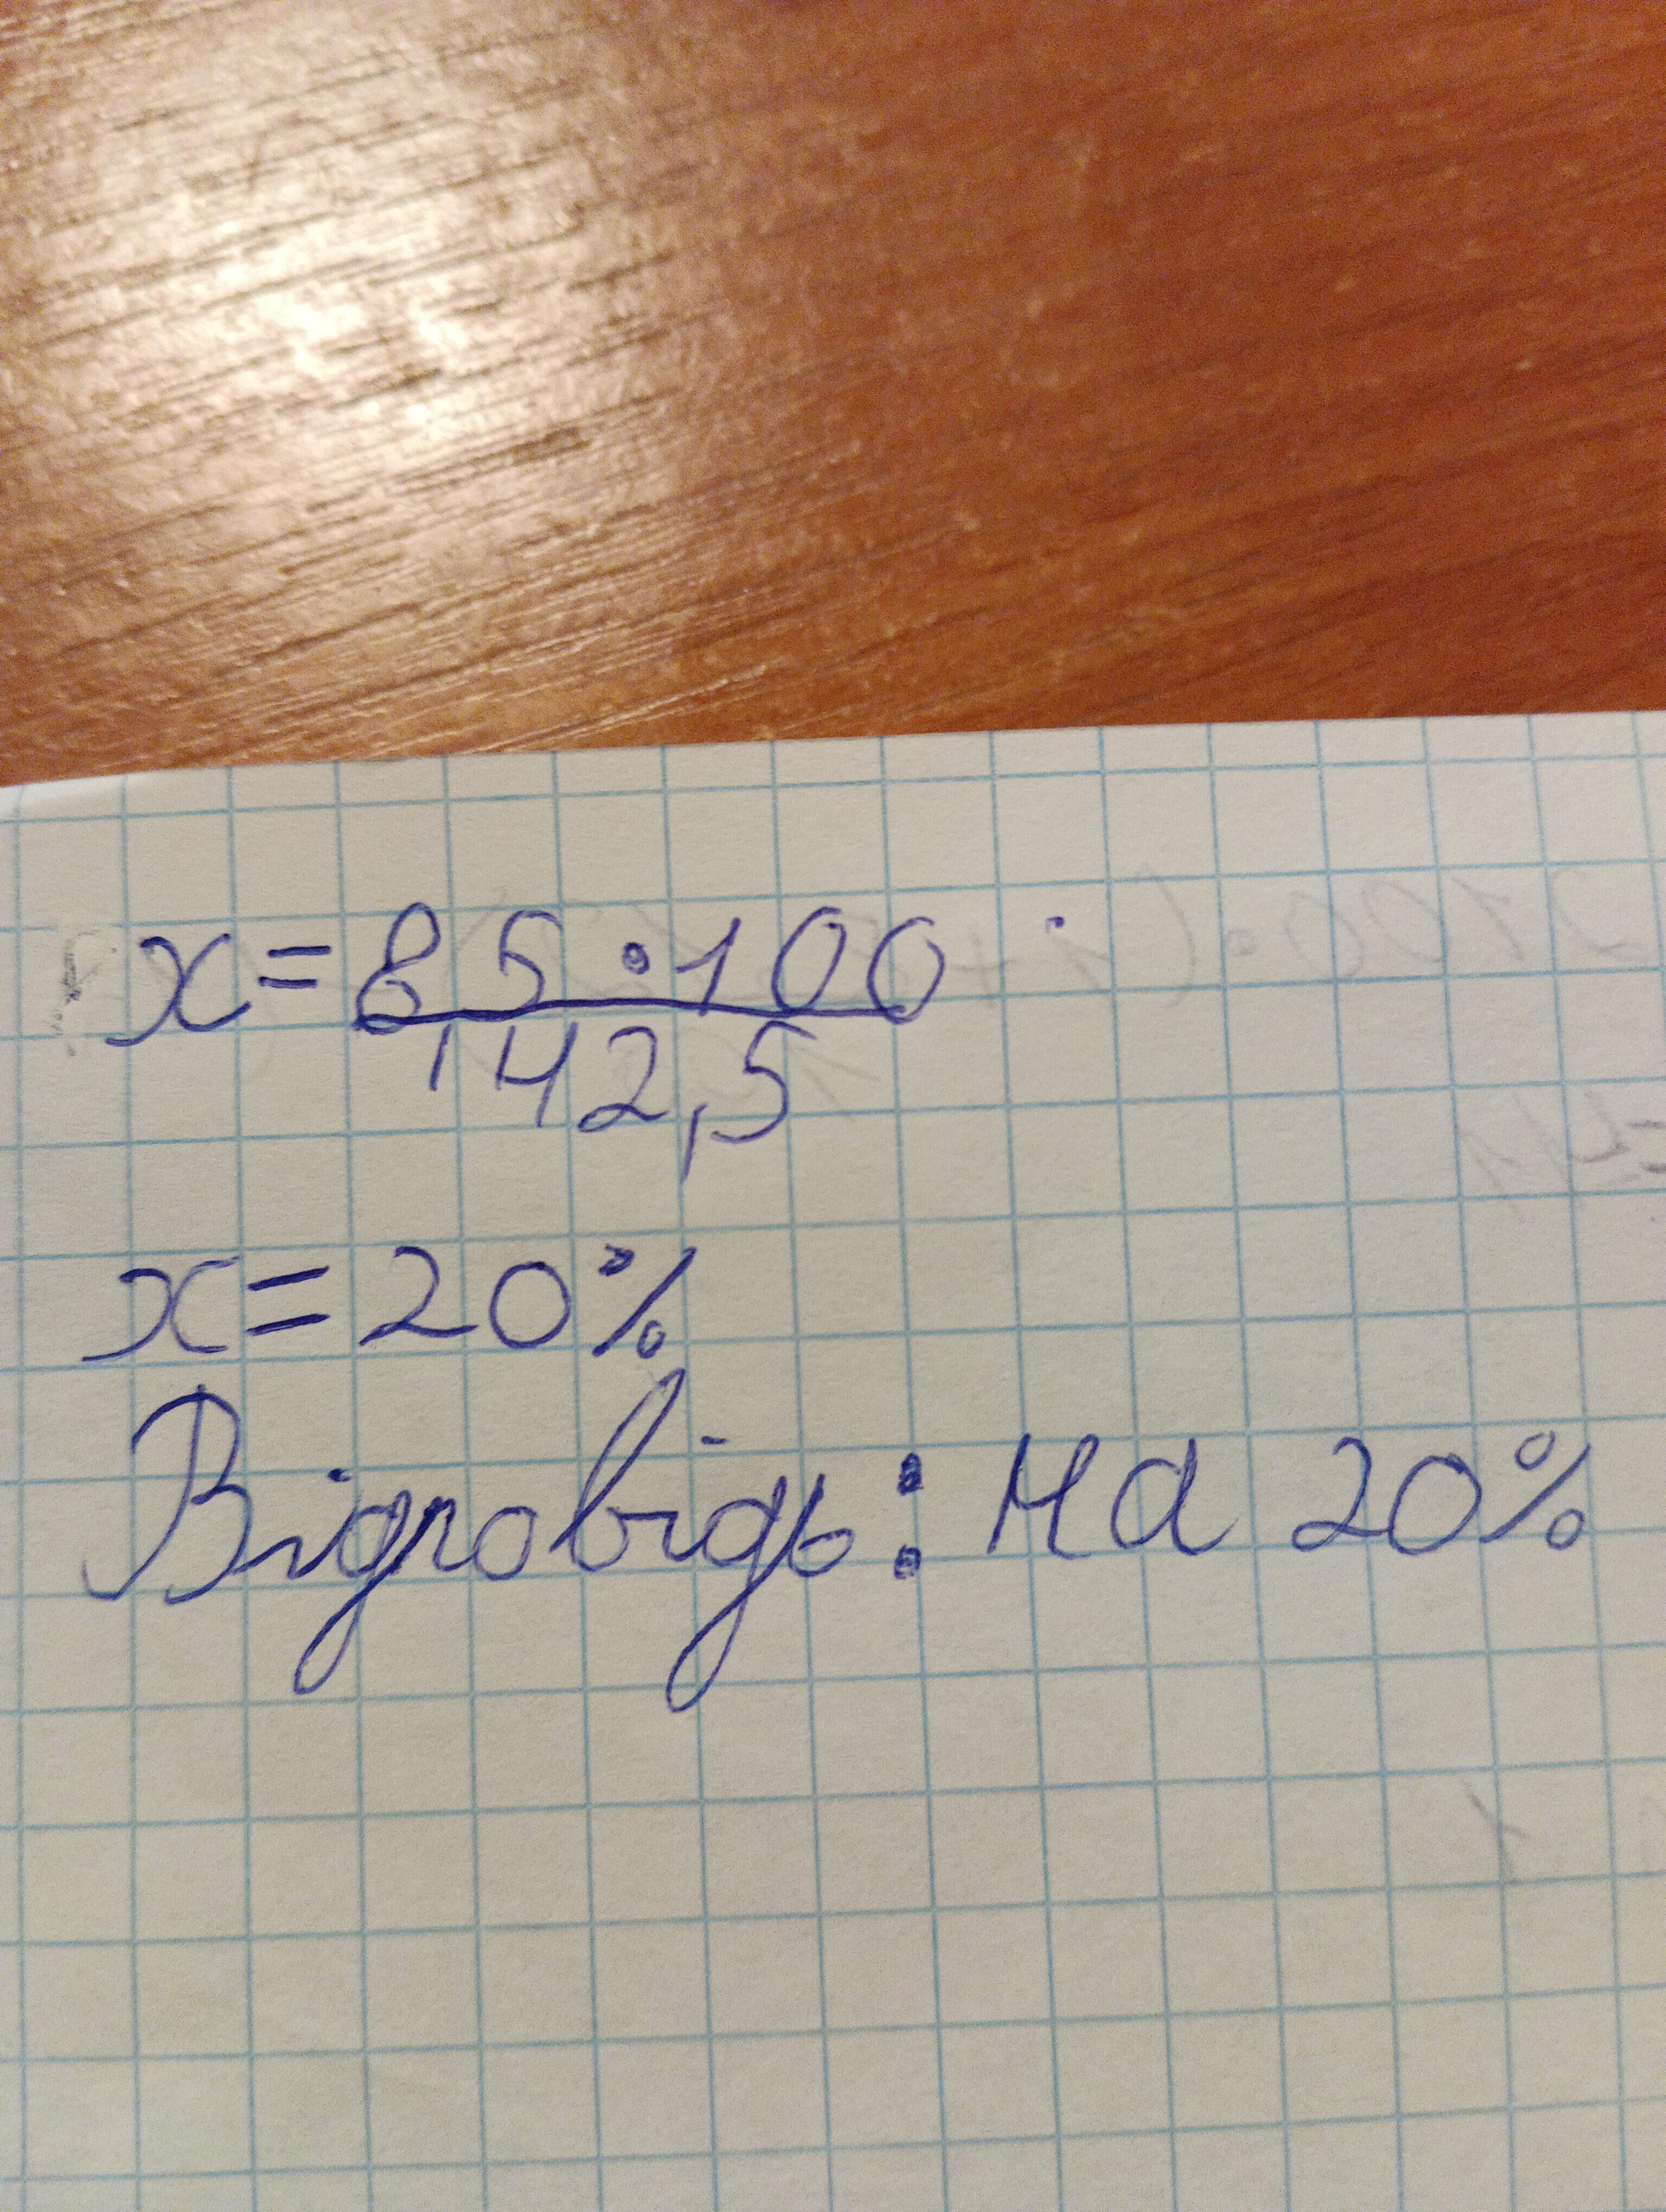 x = 85 · 100
142,5
x = 20%
Відповідь: на 20%